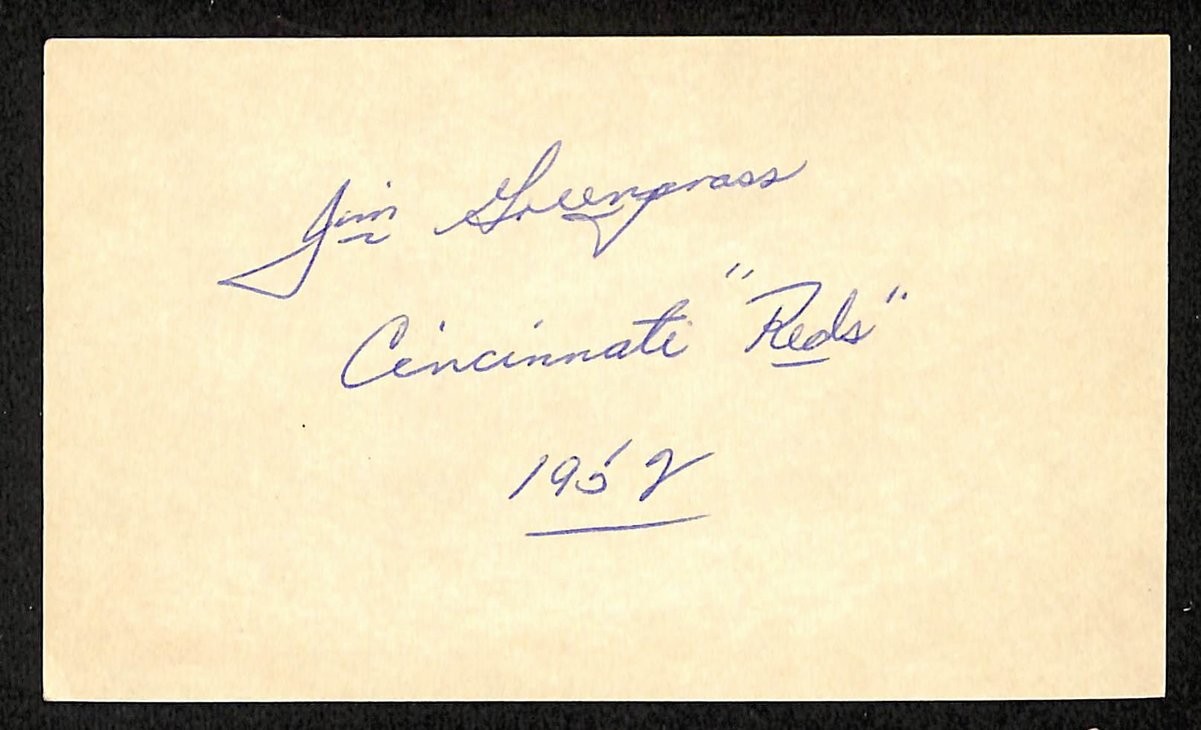 Jim Greengrass
Cincinnati "Reds"
1952